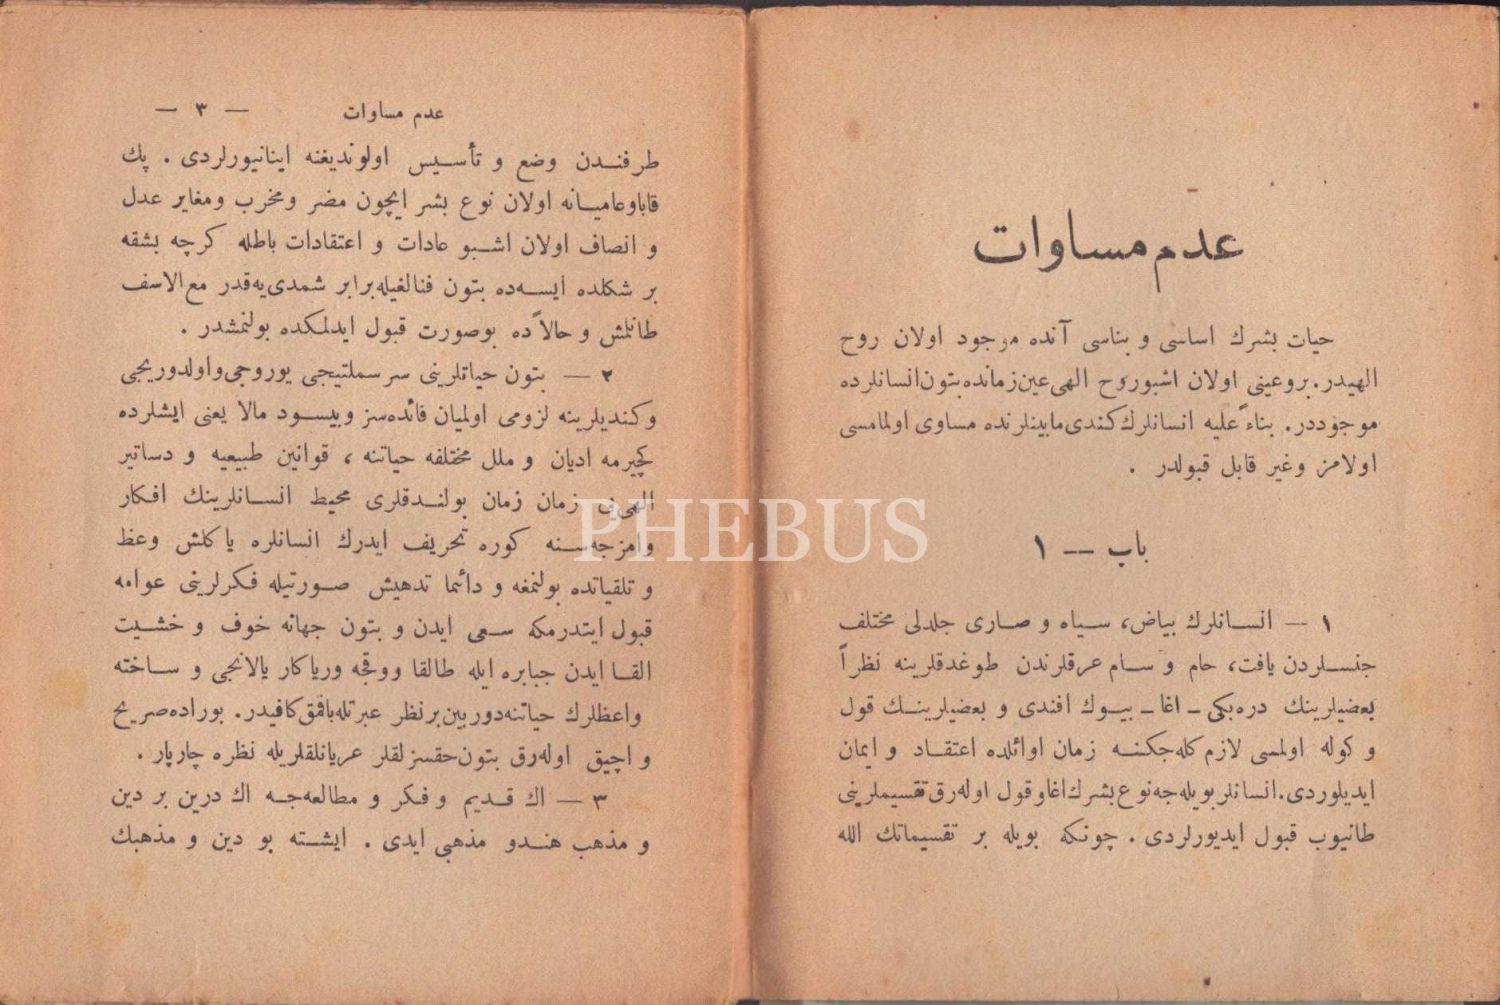 عدم مساوات
حیات بشرك اساسی و بناسی آنده موجود اولان روح
الهیدر. بروعینی اولان اشبوروح الهی عین زمانده بتون انسانلرده
موجوددر. بناءً علیه انسانلرك كندی مابینلرنده مساوی اولمامسی
اولامز وغیر قابل قبولدر .
باب — ۱
۱ — انسانلرك بیاض، سیاه و صاری جلدلی مختلف
جنسلردن یافت، حام و سام عرقلرندن طوغدقلرینه نظراً
بعضیلرینك دره‌بكی - اغا - بیوك افندی و بعضیلرینك قول
و كوله اولمسی لازم كله‌جكنه زمان اوائلده اعتقاد و ایمان
ایدیلوردی. انسانلر بویله‌جه نوع بشرك اغاوقول اوله‌رق تقسیملرینی
طانیوب قبول ایدیورلردی . چونكه بویله بر تقسیماتك الله
عدم مساوات — ۳ —
طرفندن وضع و تأسیس اولوندیغنه اینانیورلردی . پك
قاباوعامیانه اولان نوع بشر ایچون مضر ومخرب ومغایر عدل
و انصاف اولان اشبو عادات و اعتقادات باطله كرچه بشقه
بر شكلده ایسه‌ده بتون فنالغیله برابر شمدی‌یه‌قدر مع‌الاسف
طانلمش و حالاً ده بوصورت قبول ایدلمكده بولنمشدر .
۲ — بتون حیاتلرینی سرسملتیجی یوروجی واولدوریجی
وكندیلرینه لزومی اولمیان فائده‌سز وبیسود مالا یعنی ایشلرده
كچیرمه ادیان و ملل مختلفه حیاتنه ، قوانین طبیعیه و دساتیر
الهی‌یی زمان زمان بولندقلری محیط انسانلرینك افكار
وامزجه‌سنه كوره تحریف ایدرك انسانلره یاكلش وعظ
و تلقیاتده بولنمغه و دائما تدهیش صورتیله فكرلرینی عوامه
قبول ایتدرمكه سعی ایدن و بتون جهانه خوف و خشیت
القا ایدن جبابره ایله طالقا ووقجه وریاكار یالانجی و ساخته
واعظلرك حیاتنه دوربین برنظر عبرتله باقمق كافیدر. بوراده صریح
و اچیق اوله‌رق بتون حقسزلقلر عریانلقلریله نظره چارپار .
۳ — اك قدیم و فكر و مطالعه‌جه اك درین بر دین
و مذهب هندو مذهبی ایدی . ایشته بو دین و مذهبك
PHEBUS